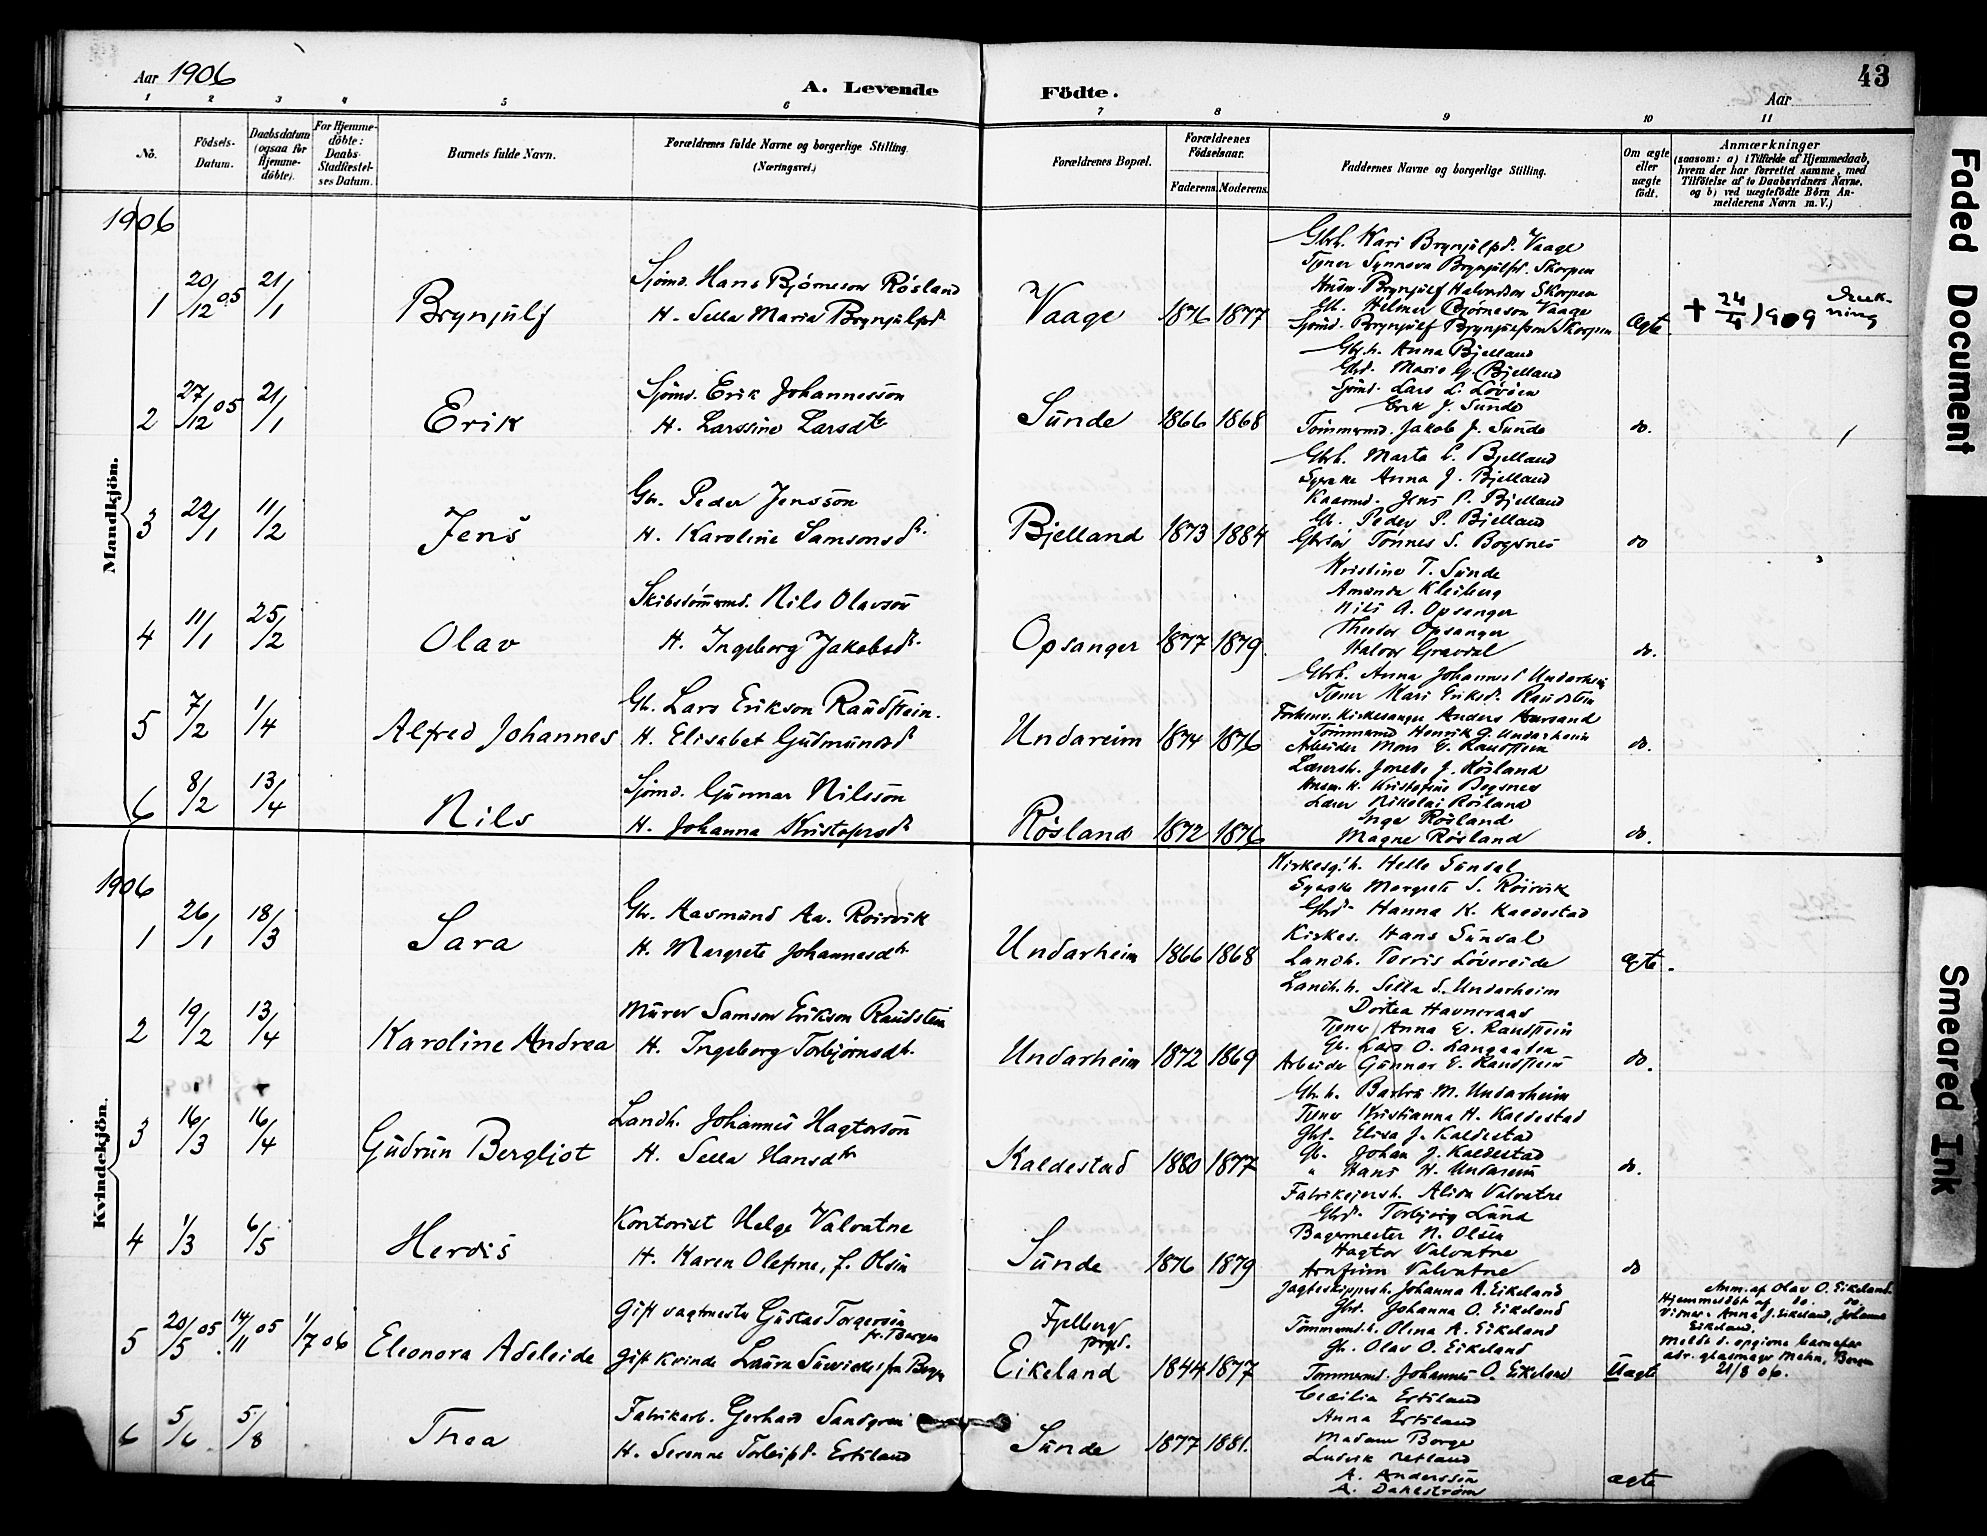 Aar 1906
A. Levende Födte.
43
Aar
1 2 3 4 5 6 7 8 9 10 11
No.
Födsels-Datum.
Daabsdatum (ogsaa for Hjemme-döbte).
For Hjemme-döbte: Daabs-Stadfæstel-ses Datum.
Barnets fulde Navn.
Forældrenes fulde Navne og borgerlige Stilling. (Næringsvei.)
Forældrenes Bopæl.
Forældrenes Födselsaar.
Faderens. Moderens.
Faddernes Navne og borgerlige Stilling.
Om ægte eller uægte födt.
Anmærkninger
(saasom: a) i Tilfælde af Hjemmedaab, hvem der har forrettet samme, med Tilföielse af to Daabsvidners Navne, og b) ved uægtefödte Börn An-melderens Navn m. V.)
Mandkjön.
1906
1 20/12 05 21/1 Brynjülf
Sjömd. Hans Bjørneson Røsland
H. Sella Maria Brynjülfsdr.
Vaage 1876 1877
Gbrh. Kari Brynjülfsd. Vaage
Tjener Synneva Brynjülfsd. Skorpen
Brynjülf Halvorson Skorpen
Gb. Hilmer Bjørneson Vaage
Sjömd. Brynjülf Brynjülfson Skorpen
Ægte + 24/4 1909 Druk-ning
2 27/12 05 21/1 Erik
Sjömd. Erik Johannesson
H. Larssine Larsdtr
Sünde 1866 1868
Gbr.h. Anna Bjelland
Gbd. Marie G. Bjelland
Sjömd. Lars L. Løvöen
Erik J. Sünde
Tömmermd. Jakob J. Sünde
do.
3 22/1 11/2 Jens
Gbr. Peder Jensson
H. Karoline Samsonsdr.
Bjelland 1873 1884
Gbrh. Marta L. Bjelland
Anna J. Bjelland
Jens P. Bjelland
Gb. Peder P. Bjelland
Tönnes S. Bogsnes
do
4 11/1 25/2 Olav
Skibstömrmd. Nils Olavson
H. Ingeborg Jakobsdr.
Opsanger 1877 1879.
Kristine T. Sünde
Amanda Kleiberg
Nils A. Opsanger
Theodor Opsanger
Halvor Gravdal
do.
5 7/2 1/4 Alfred Johannes
Gb. Lars Erikson Raudstein.
H. Elisabet Güdmündsd
Undareim 1874 1876
Gbrh. Anna Johannesd Undarheim
Tjener Kari Eriksd. Raudstein
Forhenv. Kirkesanger Anders Aarsand
Tömmermd Henrik G. Undarheim
Arbeider Mons E. Raudstein
do.
6 8/2 13/4 Nils
Sjömd. Günnar Nilsson
H. Johanna Kristofersdr
Røsland 1872 1876
Lærersh. Jonette J. Røsland
Kristofine Bogsnes
Lærer Nikolai Røsland
Inga Røsland
Magne Røsland
do.
Kvindekjön.
1906
1 26/1 18/3 Sara
Gbr. Aasmünd Aa. Röirvik
H. Margrete Johannesdtr.
Undarheim 1866 1868
Kirkesg.h. Helle Sündal
Syerske Margrete S. Röirvik
Gbrd. Hanna K. Kaldestad
Kirkes. Hans Sündal
Landh. Torris Løvereide
ægte.
2 19/2 13/4 Karoline Andrea
Mürer Samson Erikson Raudstein
H. Ingeborg Torbjørnsdtr.
Undarheim 1872 1869
Landh.h. Sella S. Undarheim
Dortea Havneraas
Tjener Anna E. Raudstein
Gb. Lars O. Langaaten
Arbeider Günnar E. Raudstein
do.
3 16/3 16/4 Güdrün Bergliot
Landh. Johannes Hagtorson
H. Sella Hansdtr
Kaldestad 1880 1877
Gbr.h. Barbra M. Undarheim
Tjener Kristianna H. Kaldestad
Gbd. Elisa J. Kaldestad
Gb. Johan J. Kaldestad
" Hans H. Undareim
do.
4 1/3 6/5 Herdis
Kontorist Helge Valvatne
H. Karen Olefine, f. Olsen
Sünde 1876 1879
Fabrikejersh. Alida Valvatne
Gbrd. Torbjørg Lünd
Bagermester N. Olsen
Hagtor Valvatne
Arnfinn Valvatne
do
5 20/5 05 14/11 05 1/7 06 Eleonora Adeleide
Gift vagtmester Güstav Torgersen fr. Bergen
Gift Kvinde Laura fra Bergen
Fjelberg prgd.
Eikeland 1844 1877
Jagteskippersh. Johanna A. Eikeland
Gbd. Johanna O. Eikeland
Tömmermd.h. Olena A. Eikeland
Gb. Olav O. Eikeland
Tömmermd. Johannes O. Eikeland
Uægte
Anm. af Olav O. Eikeland.
Hjemmedöbt af do. do.
Vidner Anna J. Eikeland, Johanna
Eikeland.
Meldt d. opgivne barnefar
adr. glasmagr Møhn, Bergen
21/8 06.
6 5/6 5/8 Thea
Fabrikarb. Gerhard Sandgren
H. Serenne Torleifsd. Ertsland
Sünde 1877 1881.
Cecilia Ertsland
Anna Ertsland
Madam Borge
Ludvik Retland
A. Andersson
A. Dahlström
ægte
Faded Document
Smeared Ink